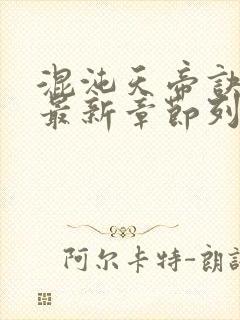 混沌天帝诀
最新章节列
阿尔卡特-朗